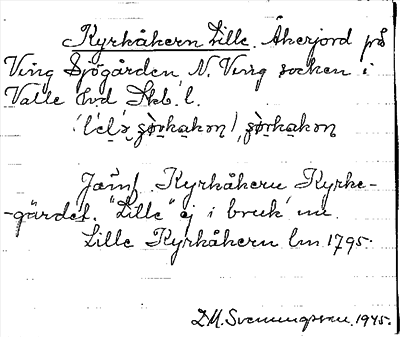 Kyrkåkern Lille. Åkerjord på
Ving Sjögården N. Ving socken i
Valle hrd Skb. l.
Jämf. Kyrkåkern Kyrke-
-gärdet. "Lille" ej i bruk nu.
Lille Kyrkåkern lm 1795.
D.M. Svenungsson. 1945.